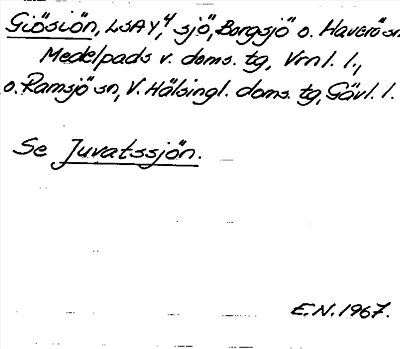 Giösiön, LSAY,4 sjö, Borgsjö o. Haverö sn
Medelpads v. doms. tg, Vrnl. l.,
o. Ramsjö sn, V. Hälsingl. doms. tg, Gävl. l.
Se Juvatssjön.
E.N. 1967.